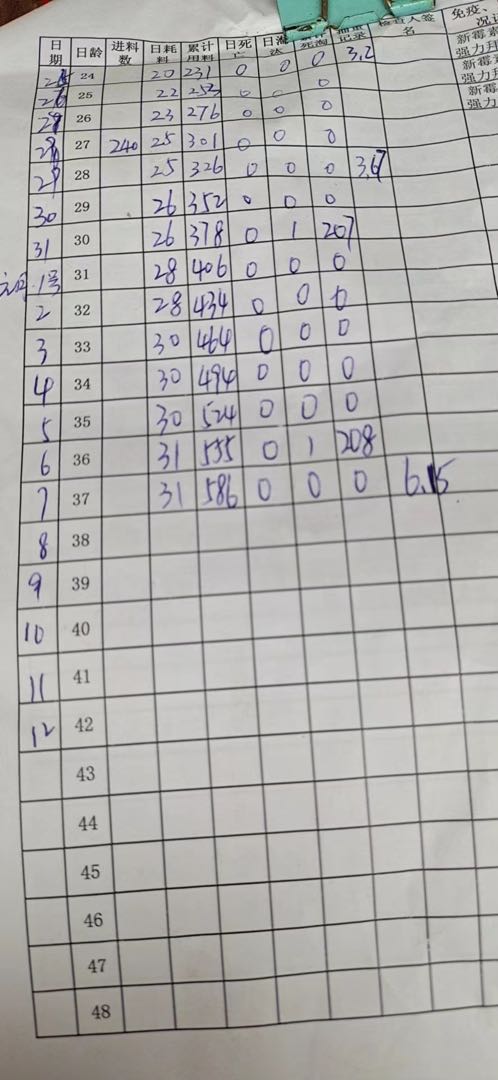 日期 日龄 进料数 日耗料 累计用料 日死亡 日淘汰 死淘 记录 检查人签名 免疫、
24 20 231 0 0 0 3.2 新霉素 强力拜
25 22 253 0 0 0 新霉素 强力拜
26 23 276 0 0 0 新霉 强力
28 27 240 25 301 0 0 0
29 28 25 326 0 0 0 3.67
30 29 26 352 0 0 0
31 30 26 378 0 1 207
1号 31 28 406 0 0 0
2 32 28 434 0 0 0
3 33 30 464 0 0 0
4 34 30 494 0 0 0
5 35 30 524 0 0 0
6 36 31 555 0 1 208
7 37 31 586 0 0 0 6.15
8 38
9 39
10 40
11 41
12 42
43
44
45
46
47
48